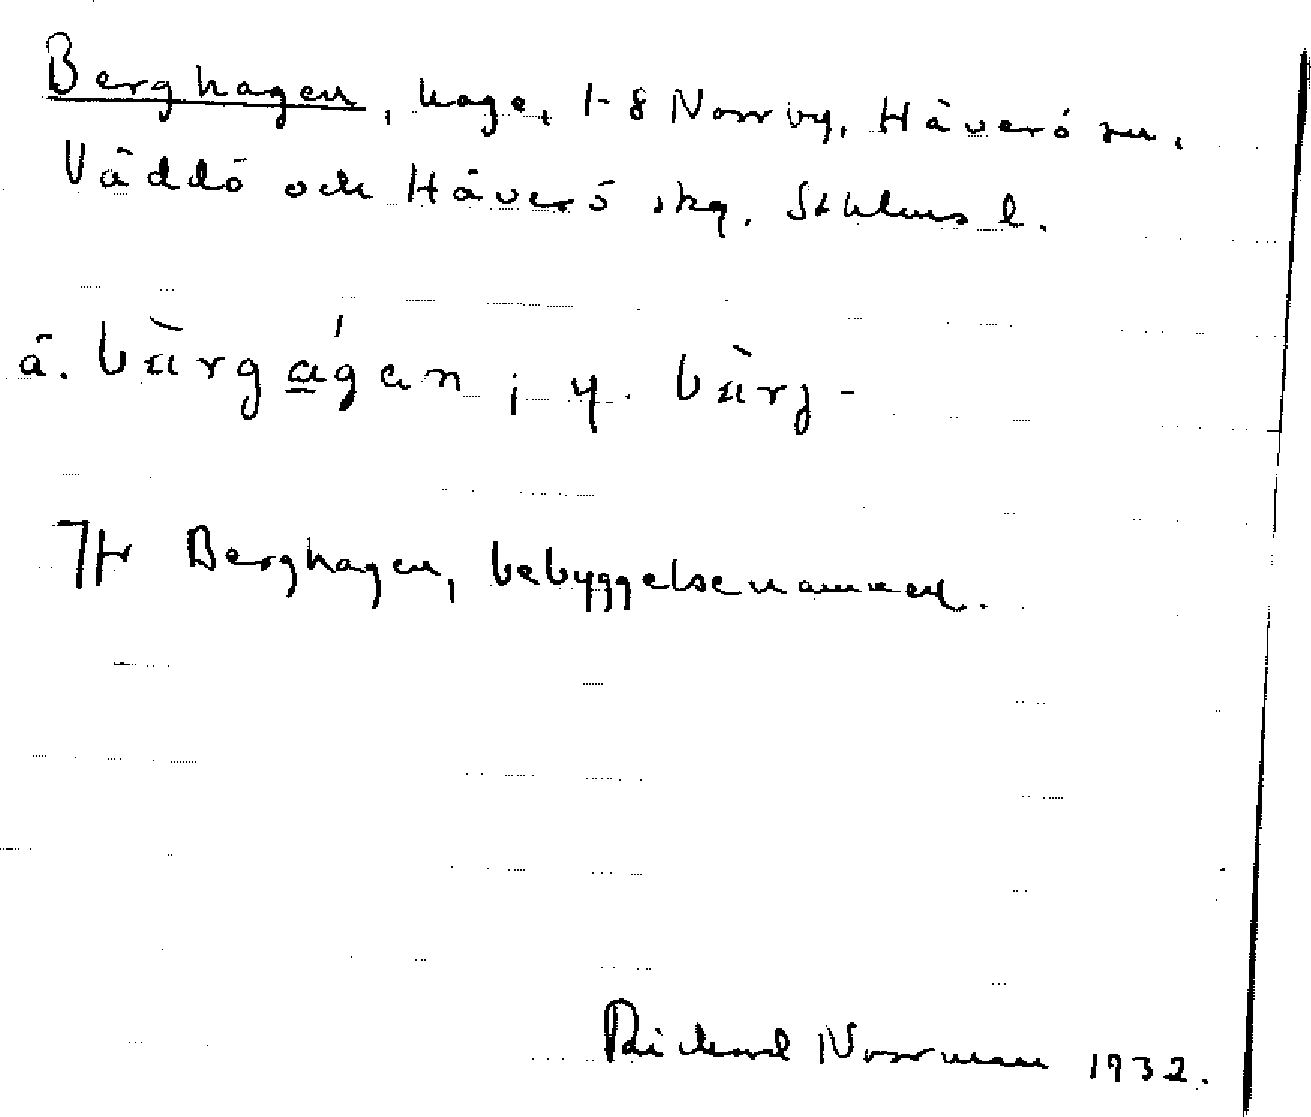 Berghagen, hage, 1-8 Norrby, Häverö sn.
Väddö och Häverö skg. Sthlms l.
ä. bä̀rgágan ; y. bä̀rj-
Jfr Berghagen, bebyggelsenamnen.
Rickard Norrman 1932.